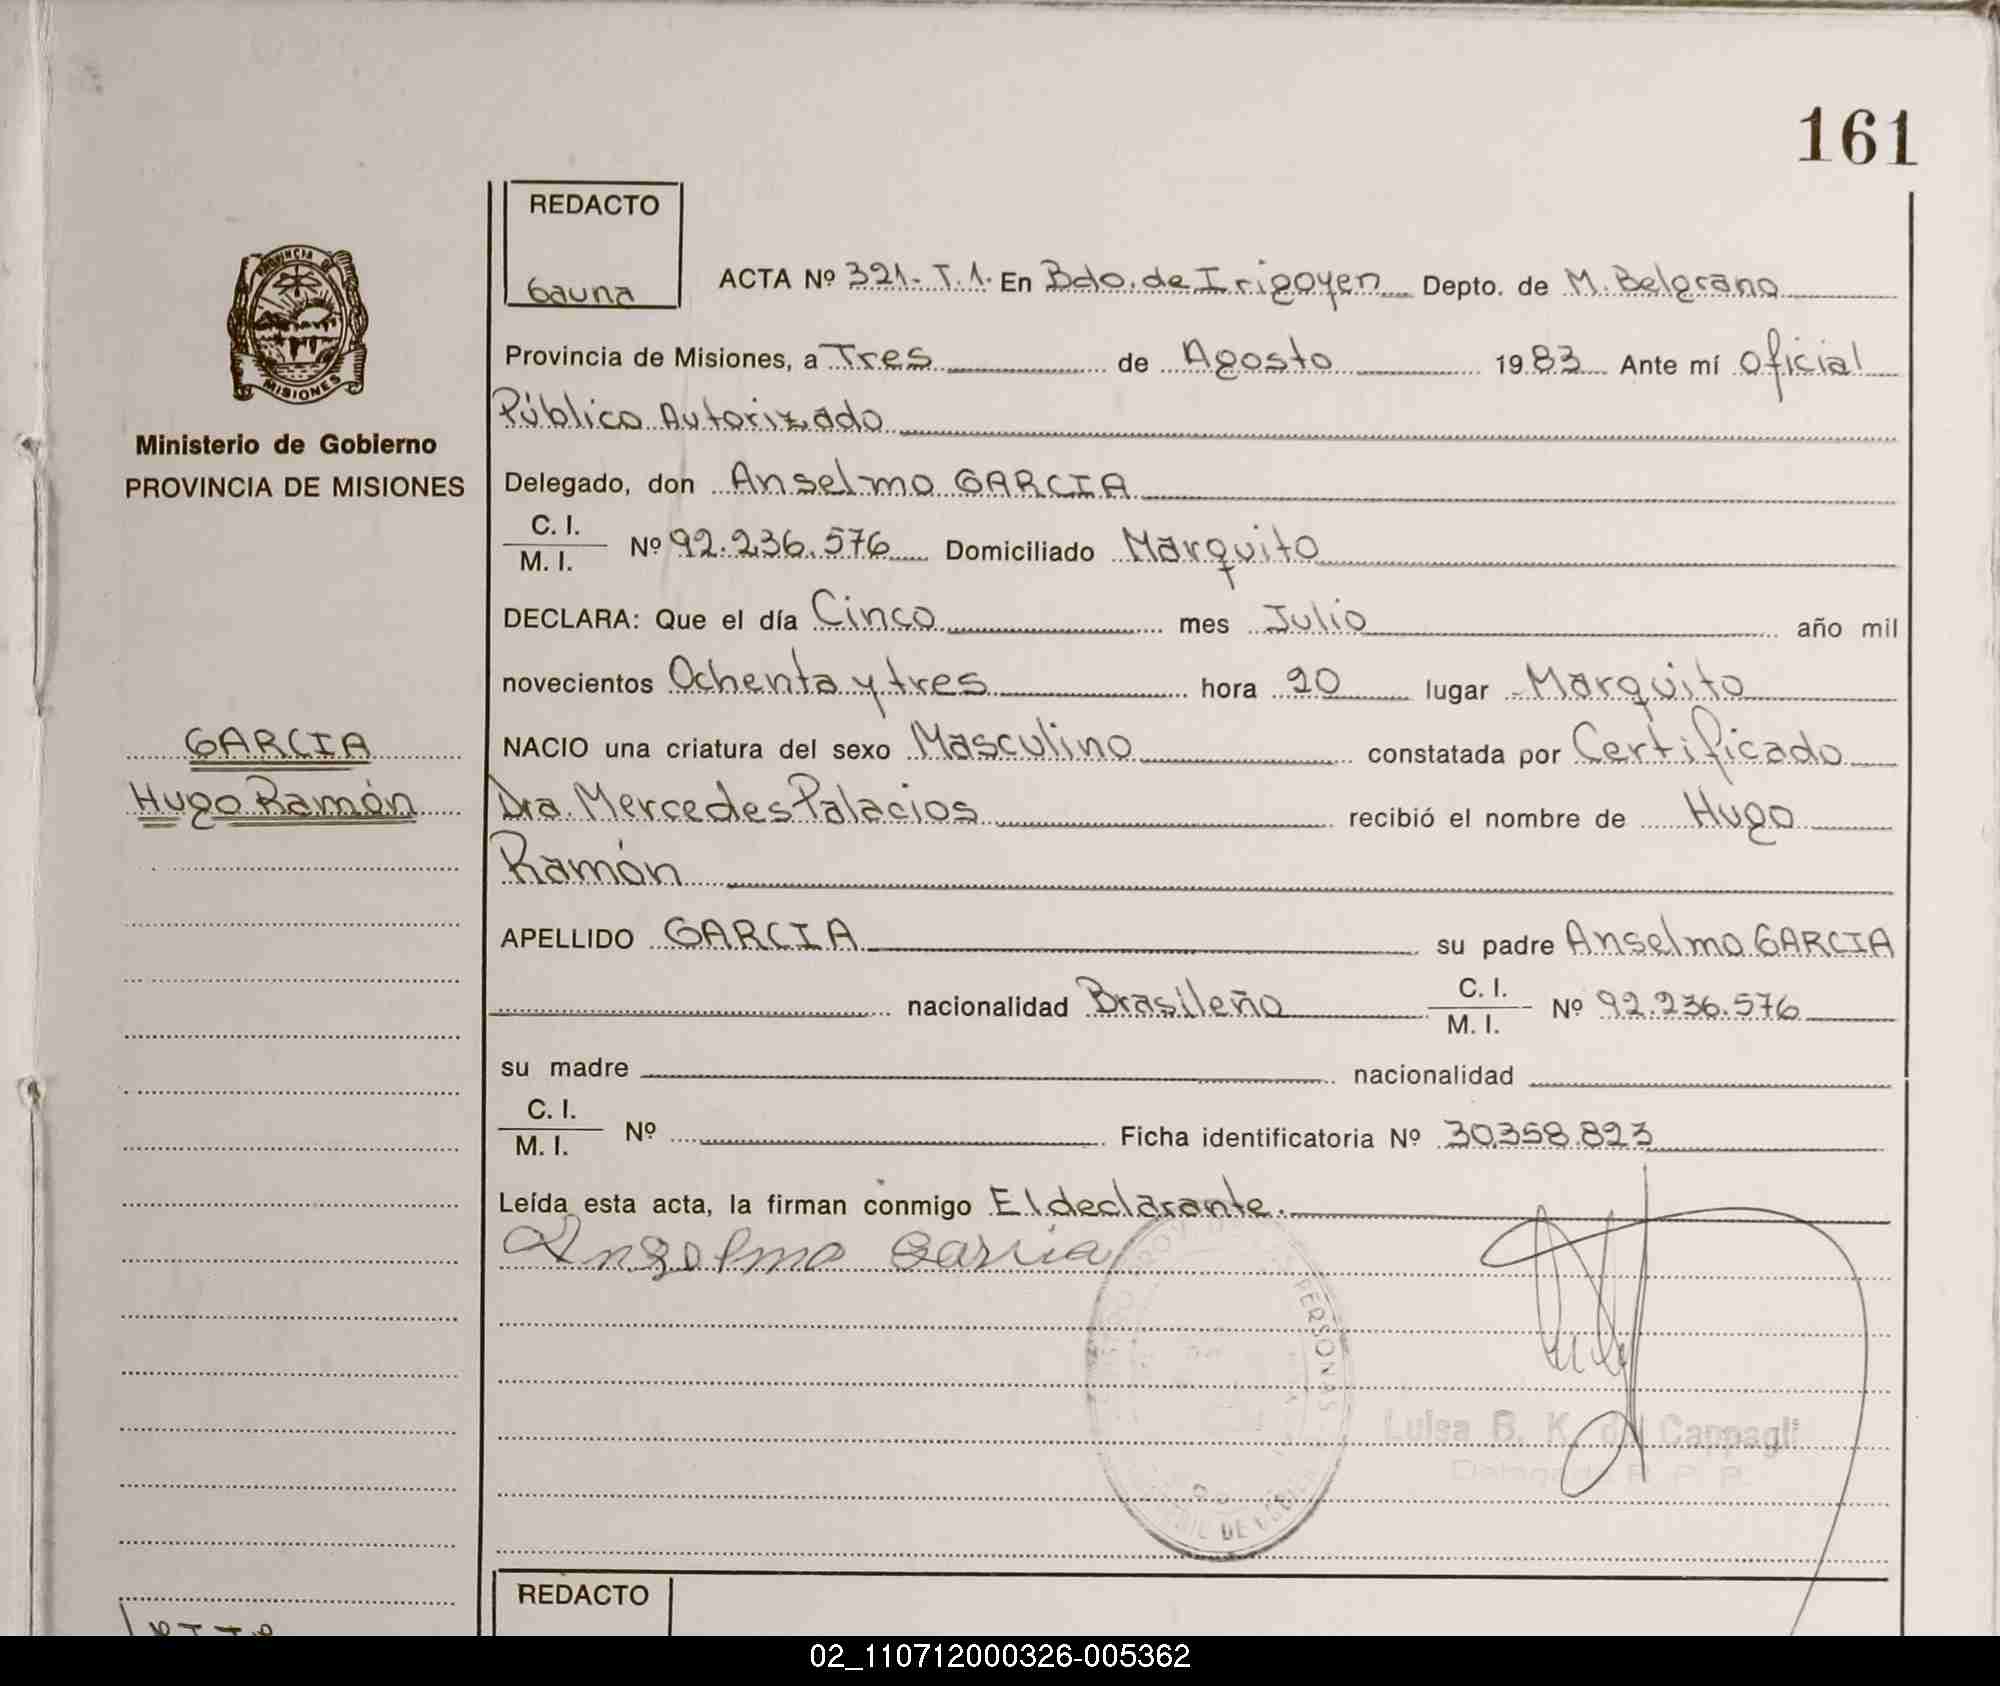 161
REDACTO
Gauna
ACTA Nº 321- T.1. En Bdo. de Irigoyen Depto. de M. Belgrano
Provincia de Misiones, a Tres de Agosto 1983 Ante mí Oficial
Público Autorizado
PROVINCIA DE
MISIONES
Ministerio de Gobierno
PROVINCIA DE MISIONES
Delegado, don Anselmo GARCIA
C. I.
M. I. Nº 92.236.576 Domiciliado Marquito
DECLARA: Que el día Cinco mes Julio año mil
novecientos Ochenta y tres hora 20 lugar Marquito
GARCIA
Hugo Ramón
NACIO una criatura del sexo Masculino constatada por Certificado
Dra. Mercedes Palacios recibió el nombre de Hugo
Ramón
APELLIDO GARCIA su padre Anselmo GARCIA
nacionalidad Brasileño C. I.
M. I. Nº 92.236.576
su madre nacionalidad
C. I.
M. I. Nº Ficha identificatoria Nº 30.358.823
Leída esta acta, la firman conmigo El declarante.
Anselmo Garcia
PERSONAS
DE
Luisa B. K. de Cappagli
REDACTO
02_110712000326-005362